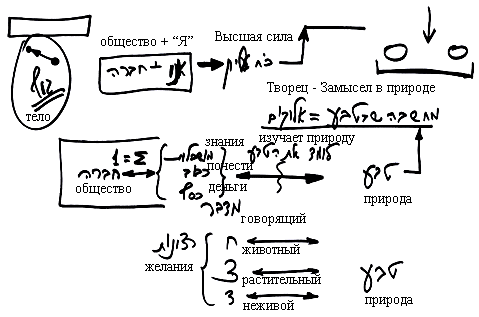 общество + “Я”
חברה + אני
Высшая сила
כח עליון
גוף
тело
Творец - Замысел в природе
מחשבה שבטבע = אלוקים
изучает природу
לומד את הטבע
1 = Σ
חברה
общество
знания
понести
כבוד
деньги
כסף
מדבר
говорящий
טבע
природа
רצונות
желания
ח
животный
צ
растительный
ד
неживой
טבע
природа